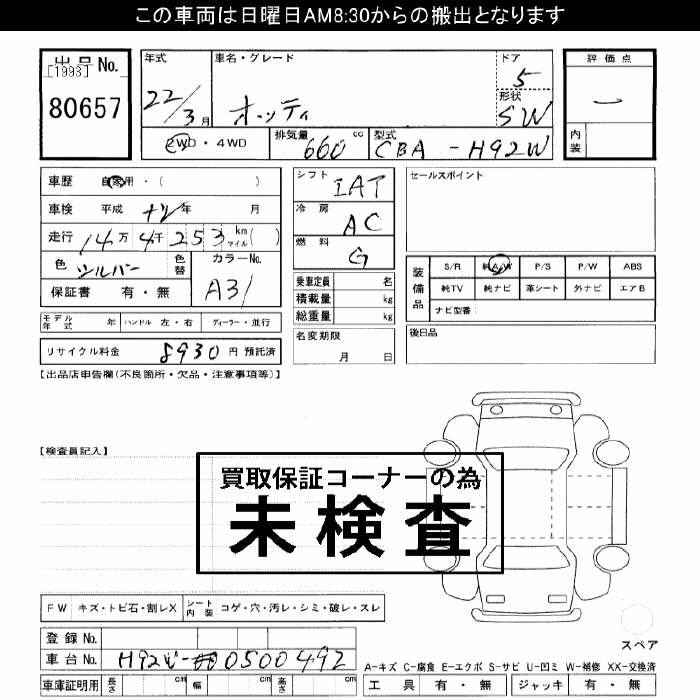 この車両は日曜日AM8:30からの搬出となります
出品No.
[1993]
80657
年式
22/3月
車名・グレード
オッティ
ドア
5
形状
SW
評価点
内装
2WD・4WD
排気量 660 cc
型式 CBA-H92W
車歴 自家用・( )
車検 平成 ナシ年 月
走行 14万4千253 km マイル( )
色 シルバー
色替
カラーNo.
A31
保証書 有・無
シフト IAT
冷房 AC
燃料 G
乗車定員 名
積載量 kg
総重量 kg
セールスポイント
装備品
S/R 純A/W P/S P/W ABS
純TV 純ナビ 革シート 外ナビ エアB
ナビ型番:
モデル年式 年 ハンドル 左・右 ディーラー・並行
名変期限
月 日
後日品
リサイクル料金 8930 円 預託済
【出品店申告欄(不良箇所・欠品・注意事項等)】
【検査員記入】
買取保証コーナーの為
未検査
FW キズ・トビ石・割レX
シート内装 コゲ・穴・汚レ・シミ・破レ・スレ
登録No.
車台No. H92W-0500492
車庫証明用 長さ 幅 高さ
スペア
A-キズ C-腐食 E-エクボ S-サビ U-凹ミ W-補修 XX-交換済
工具 有・無 ジャッキ 有・無